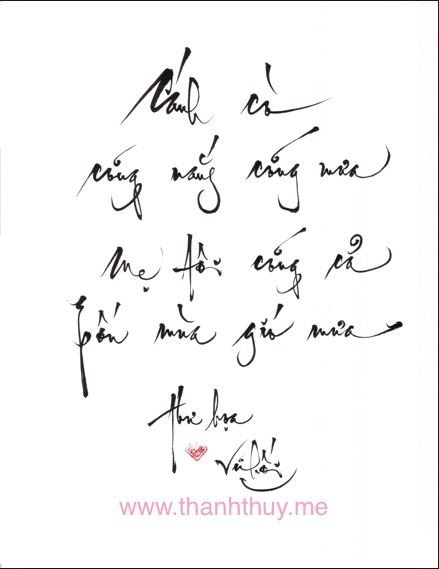 Cánh cò
cõng nắng cõng mưa
Mẹ tôi cõng cả
bốn mùa gió mưa
thư họa
www.thanhthuy.me